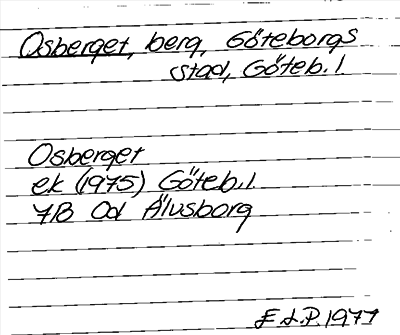 Osberget, berg, Göteborgs
stad, Göteb. l.
Osberget
ek (1975) Göteb. l.
7B Od Älvsborg
E.L.P. 1977